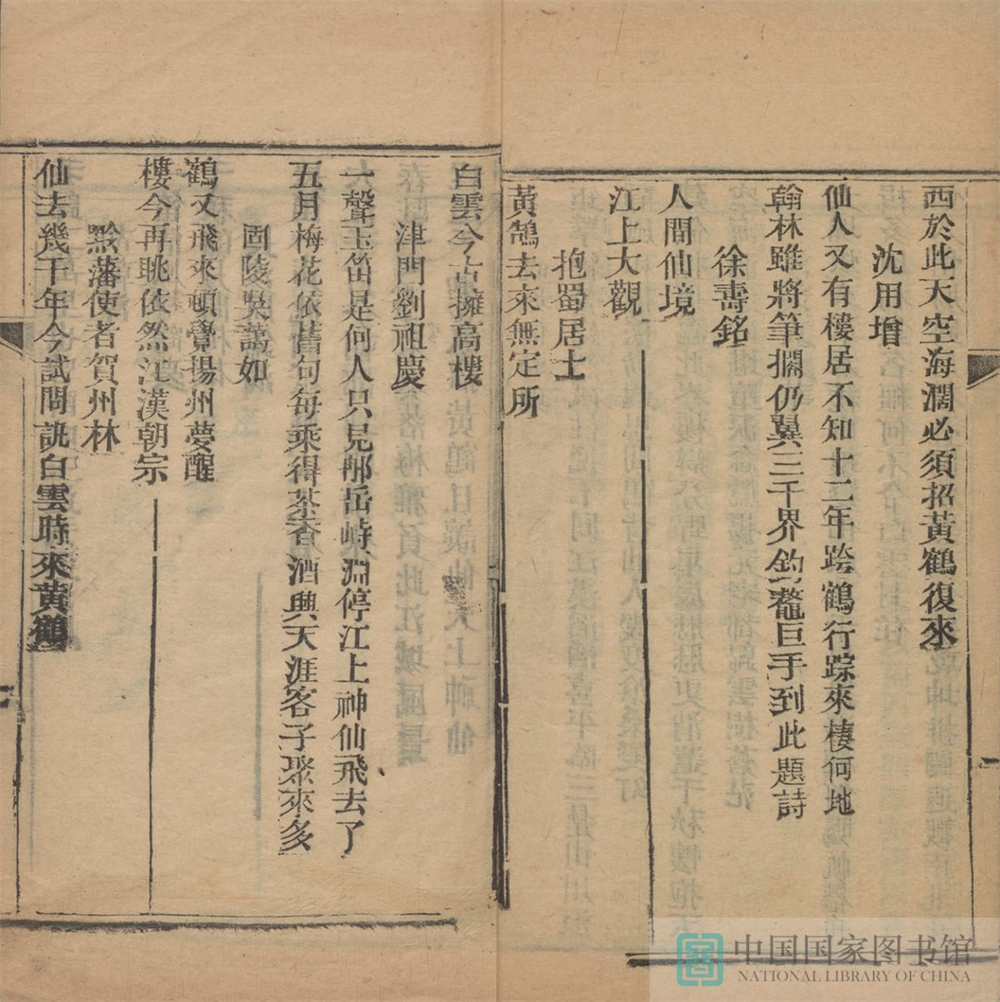 西於此天空海濶必須招黃鶴復來
沈用增
仙人又有樓居不知十二年跨鶴行踪來棲何地
翰林雖將筆擱仍翼三千界釣鼇巨手到此題詩
徐壽銘
人間仙境
江上大觀
抱蜀居士
黃鵠去來無定所
白雲今古擁高樓
津門劉祖慶
一聲玉笛是何人只見邴岳峙淵停江上神仙飛去了
五月梅花依舊句每乘得茶香酒興天涯客子聚來多
固陵吳藹如
鶴又飛來頓覺揚州夢醒
樓今再眺依然江漢朝宗
黔藩使者賀州林
仙去幾千年今試問訛白雲時來黄鶴
中国国家图书馆
NATIONAL LIBRARY OF CHINA